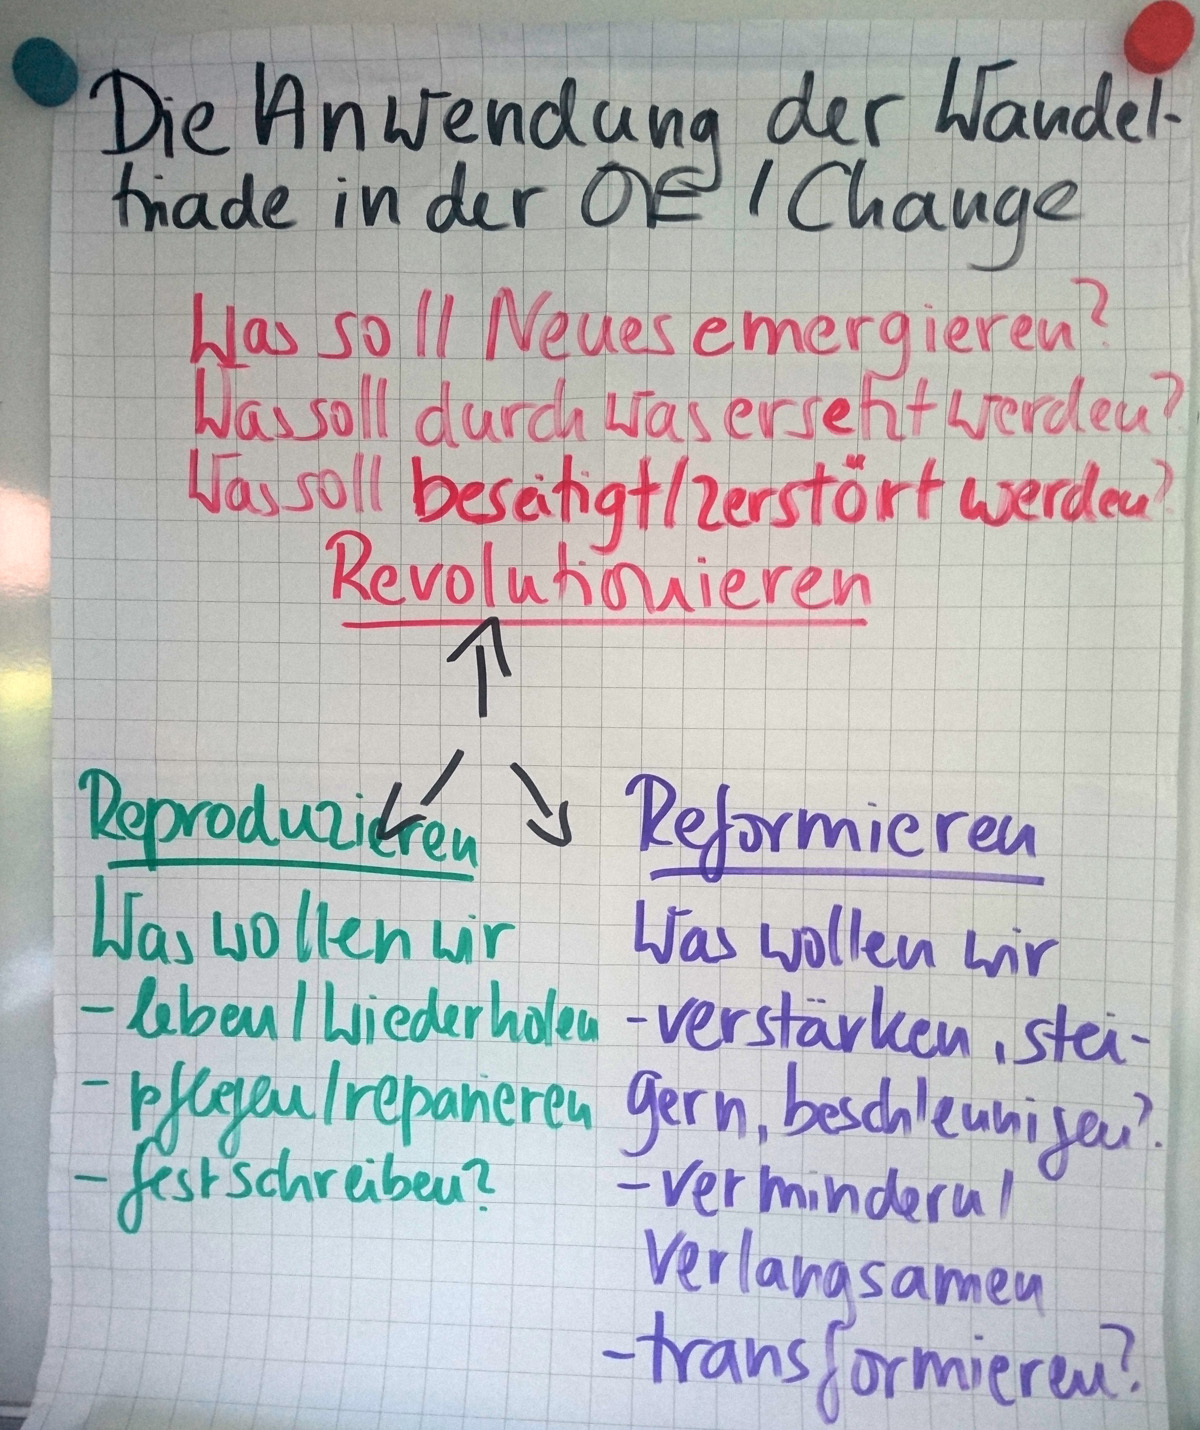 Die Anwendung der Wandel-
triade in der OE / Change
Was soll Neues emergieren?
Was soll durch was ersetzt werden?
Was soll beseitigt/zerstört werden?
Revolutionieren
Reproduzieren
Was wollen wir
- leben/wiederholen
- pflegen/reparieren
- festschreiben?
Reformieren
Was wollen wir
- verstärken, stei-
gern, beschleunigen?
- vermindern/
verlangsamen
- transformieren?